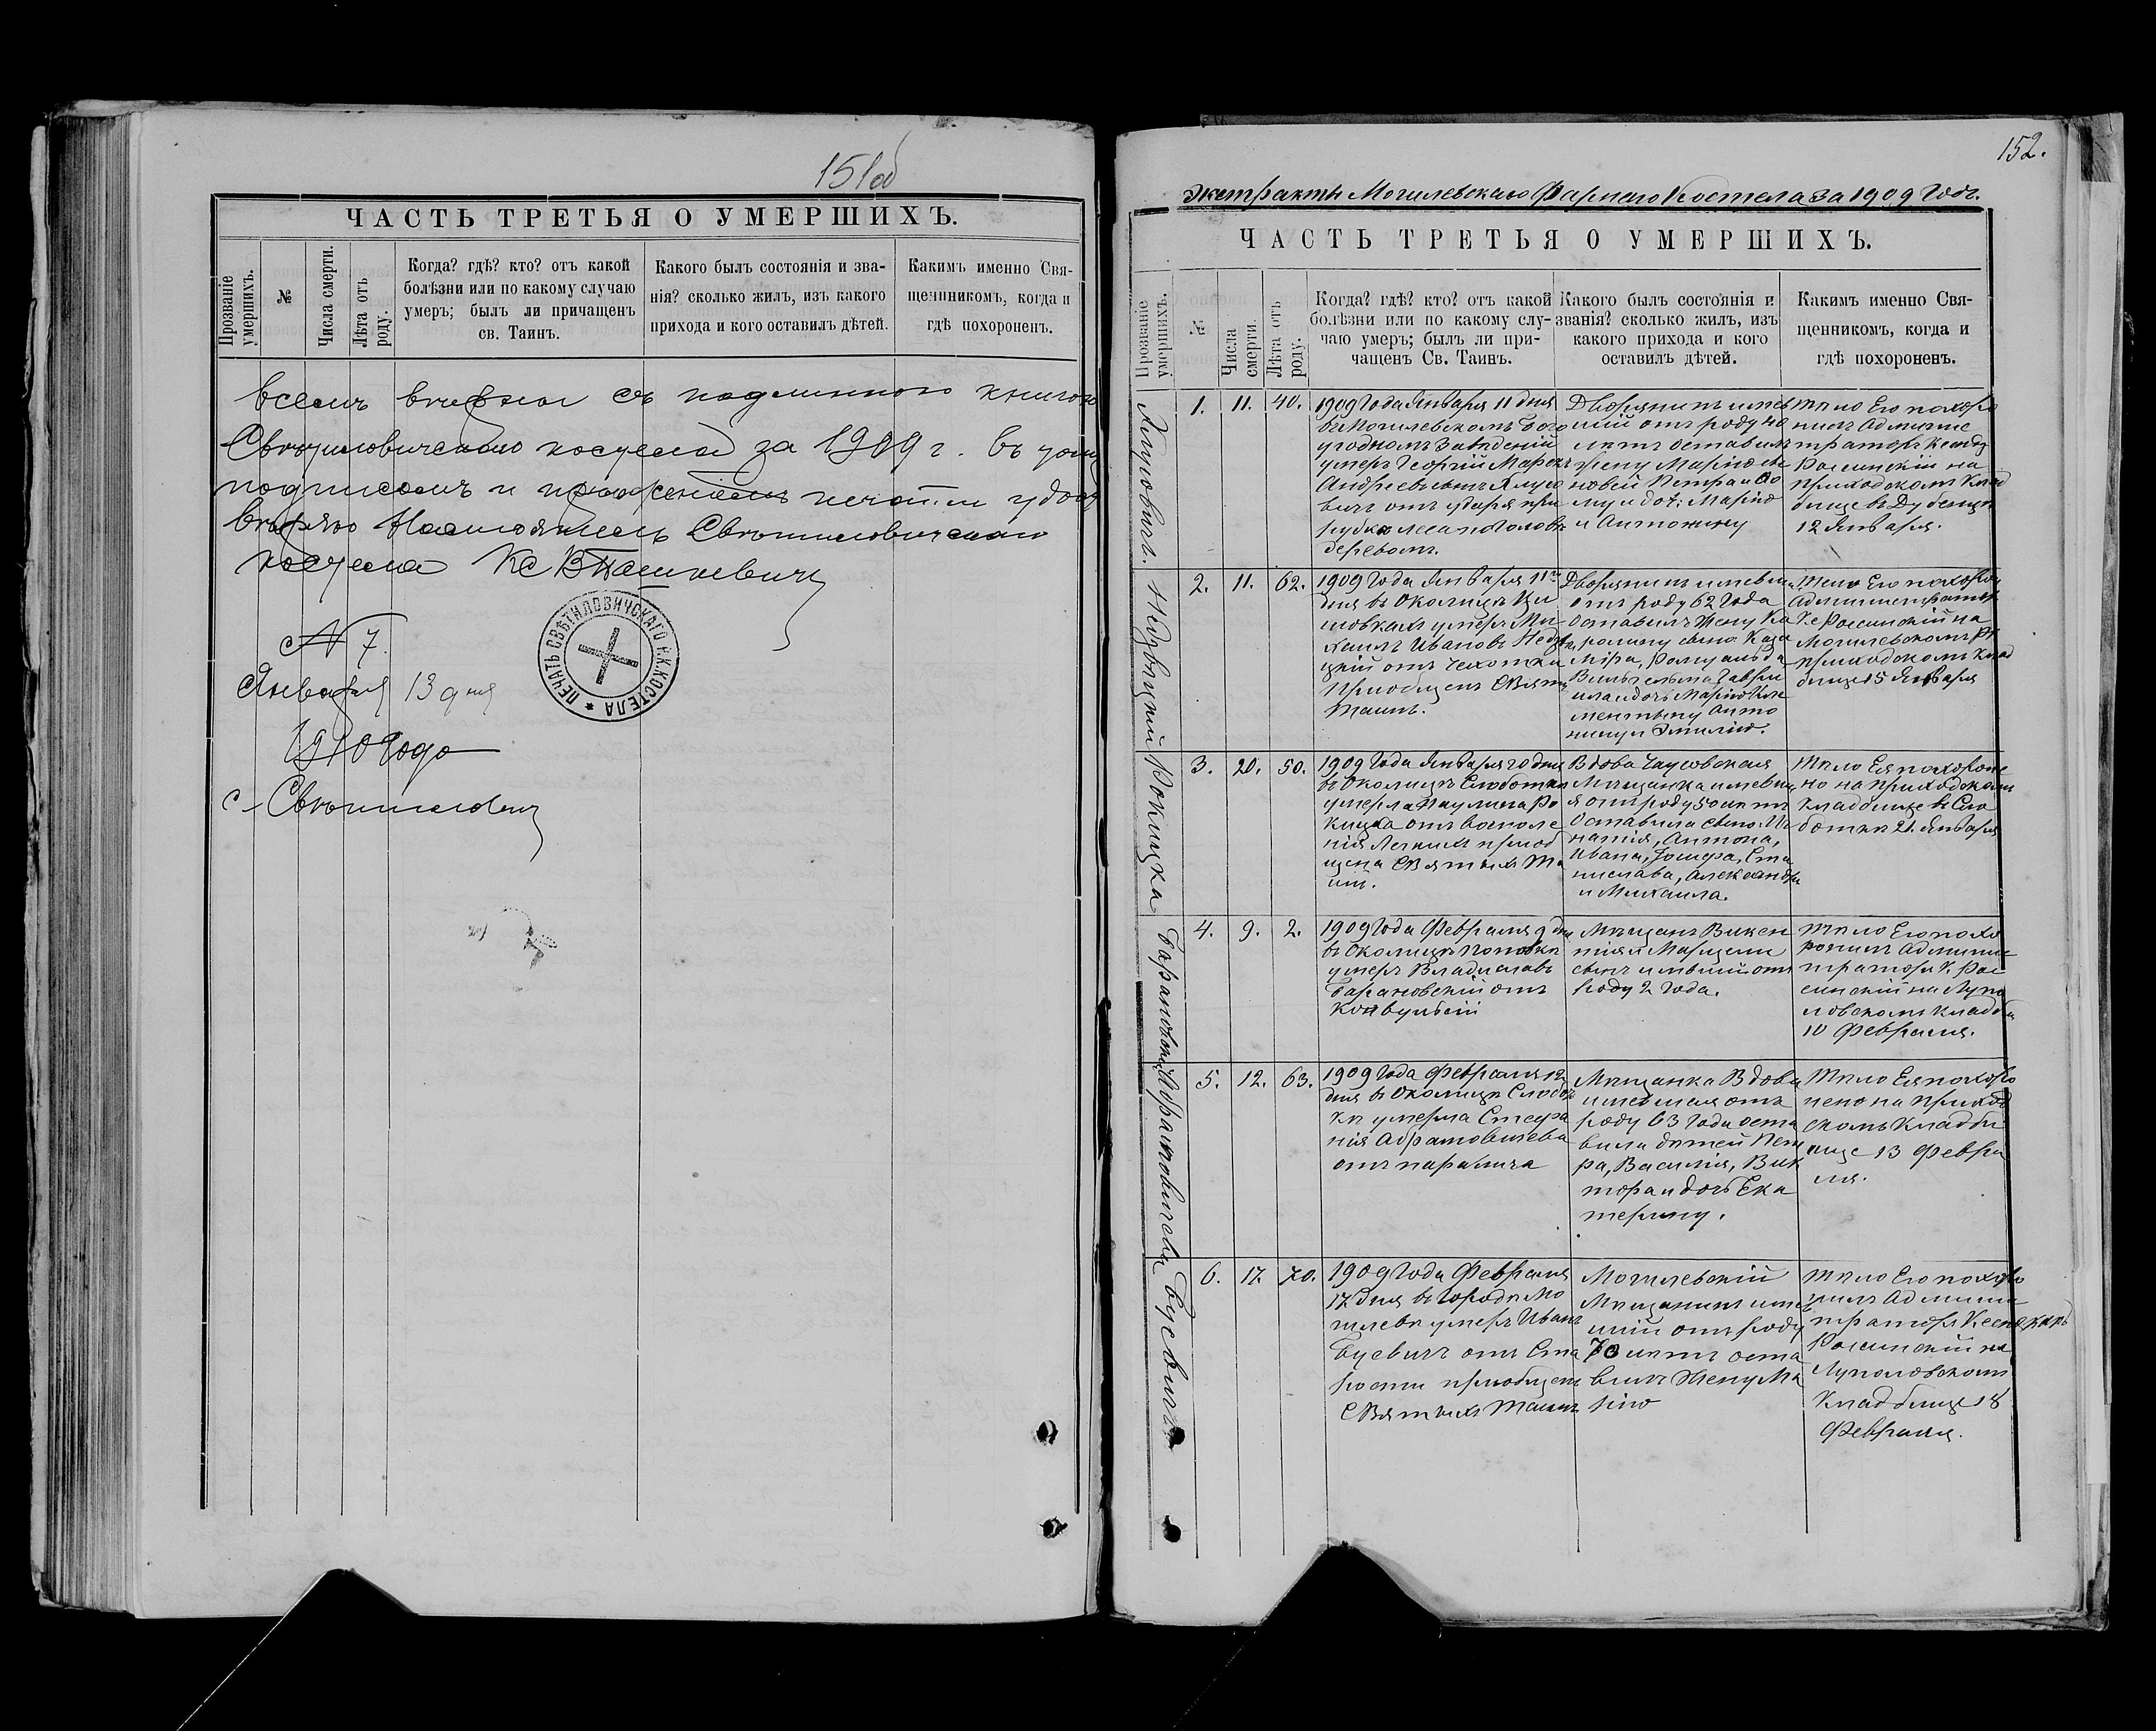 151об
ЧАСТЬ ТРЕТЬЯ О УМЕРШИХЪ.
Прозваніе умершихъ.
№
Числа смерти.
Лѣта отъ роду.
Когда? гдѣ? кто? отъ какой
болѣзни или по какому случаю
умеръ; былъ ли причащенъ
св. Таинъ.
Какого былъ состоянія и зва-
нія? сколько жилъ, изъ какого
прихода и кого оставилъ дѣтей.
Какимъ именно Свя-
щенникомъ, когда и
гдѣ похороненъ.
всемъ вѣрны съ подлинною книгою
Свѣтиловичскаго костела за 1909 г. въ томъ
подписомъ и приложеніемъ печати удосто
вѣряю Настоятель Свѣтиловичскаго
костела Кс В Пашкевичъ
№ 7.
Января 13 дня
1910 Года
с. Свѣтиловичи
ПЕЧАТЬ СВѢТИЛОВИЧСКАГО Р.К. КОСТЕЛА
152.
Экстрактъ Могилевскаго Фарнаго Костела за 1909 Годъ.
ЧАСТЬ ТРЕТЬЯ О УМЕРШИХЪ.
Прозваніе умершихъ.
№
Числа смерти.
Лѣта отъ роду.
Когда? гдѣ? кто? отъ какой
болѣзни или по какому слу-
чаю умеръ; былъ ли при-
чащенъ Св. Таинъ.
Какого былъ состоянія и
званія? сколько жилъ, изъ
какого прихода и кого
оставилъ дѣтей.
Какимъ именно Свя-
щенникомъ, когда и
гдѣ похороненъ.
1. 11. 40.
1909 Года Января 11 дня
въ Могилевскомъ Бого
угодномъ Заведеніи
умеръ Георгій
Андреевъ сынъ
вичъ отъ удара при
рубкѣ леса по Головѣ
деревомъ.
Дворянинъ имев
шій отъ роду 40
летъ оставилъ
жену Марію сы
новей Петра и
му и доч: Марію
и Антонину
Тѣло Его похоро
нилъ Админис
траторъ Ксендз
Росинскій на
приходскомъ клад
бищѣ въ
12 Января.
Недзвѣцкій
2. 11. 62.
1909 Года Января 11
дня въ Околицѣ
умеръ Ми
хаилъ Ивановъ Недзвѣ
цкій отъ Чахотки
Пріобщенъ Святых
Таинъ.
Дворянинъ имевши
отъ роду 62 Года
оставилъ Жену Ка
ролину сыно: Кази
міра, Ромуальда
Вильгельма Гаври
ила и дочь Марію Кле
ментину Анто
нину и Эмилію.
Тѣло Его похоро
Администраторъ
Кс Росинскій на
Могилевскомъ
приходскомъ клад
бище 15 Января
Рокицка
3. 20. 50.
1909 Года Января 20 дня
въ Околицѣ Слободки
умерла Паулина Ро
кицка отъ воспале
нія Легкихъ пріоб
щена Святыхъ Та
инъ.
Вдова Чаусовская
Мѣщанка имевш
я отъ роду 50 летъ
Оставила сыно: Иг
натія, Антона,
Ивана, Іосифа, Ста
нислава, Александра
и Михаила.
Тѣло Ея похороне
но на приходском
Кладбище въ Сло
бодки 21. Января
Барановскій
4. 9. 2.
1909 Года Февраля 9 дня
въ Околицѣ Поповки
умеръ Владиславъ
Барановскій отъ
Конвульсій
Мѣщанъ Викен
тія и
сынъ имевшій отъ
роду 2 Года.
Тѣло Его похо
ронилъ Админис
траторъ К. Рос
синскій на Лупо
ловскомъ кладби
10 Февраля.
Абрамовичева
5. 12. 63.
1909 Года Февраля 12
дня въ Околицѣ Слобод
ки умерла Стефа
нія Абрамовичева
отъ паралича
Мѣщанка Вдова
имевшая отъ
роду 63 Года оста
вила дѣтей Пет
ра, Василія, Вик
тора и дочь Ека
терину.
Тѣло Ея похоро
нено на приход
скомъ Кладби
ще 13 Февра
ля.
Буевичъ
6. 17. 70.
1909 Года Февраля
17 Дня въ Городѣ Мо
гилевѣ умеръ Иванъ
Буевичъ отъ Ста
рости пріобщенъ
Святыхъ Таинъ
Могилевскій
Мѣщанинъ имев
шій отъ роду
70 летъ оста
вилъ Жену Ма
рію
Тѣло Его похоро
нилъ Админис
траторъ
Росинскій на
Луполовскомъ
Кладбище 18
Февраля.